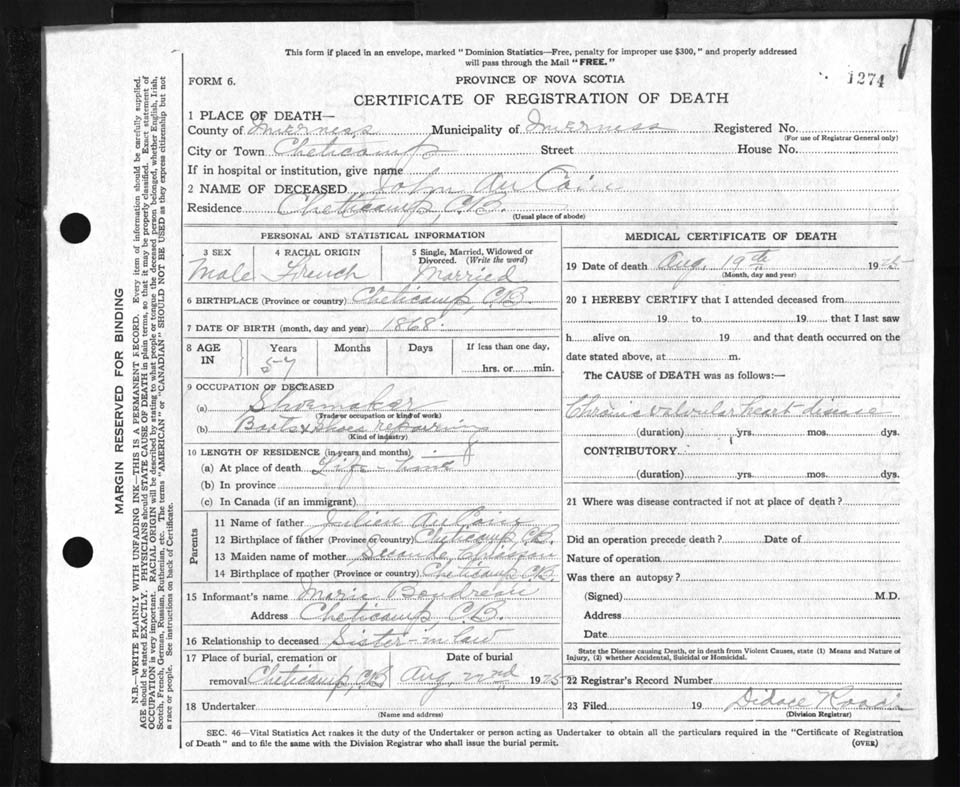 This form if placed in an envelope, marked "Dominion Statistics—Free, penalty for improper use $300," and properly addressed
will pass through the Mail "FREE."
1274
FORM 6.
PROVINCE OF NOVA SCOTIA
CERTIFICATE OF REGISTRATION OF DEATH
1 PLACE OF DEATH—
County of Inverness Municipality of Inverness Registered No.
(For use of Registrar General only)
City or Town Cheticamp Street House No.
If in hospital or institution, give name
2 NAME OF DECEASED John AuCoin
Residence Cheticamp, C.B.
(Usual place of abode)
PERSONAL AND STATISTICAL INFORMATION
3 SEX 4 RACIAL ORIGIN 5 Single, Married, Widowed or
Divorced. (Write the word)
Male French Married
6 BIRTHPLACE (Province or country) Cheticamp, C.B.
7 DATE OF BIRTH (month, day and year) 1868.
8 AGE IN Years Months Days If less than one day,
57 hrs. or min.
9 OCCUPATION OF DECEASED
(a) Shoemaker
(Trade or occupation or kind of work)
(b) Boots & Shoes repairing
(Kind of industry)
10 LENGTH OF RESIDENCE (in years and months)
(a) At place of death Life-time
(b) In province
(c) In Canada (if an immigrant)
Parents
11 Name of father Julien AuCoin
12 Birthplace of father (Province or country) Cheticamp C.B.
13 Maiden name of mother
14 Birthplace of mother (Province or country) Cheticamp C.B.
15 Informant's name Marie Boudreau
Address Cheticamp C.B.
16 Relationship to deceased Sister-in law
17 Place of burial, cremation or Date of burial
removal Cheticamp, C.B. Aug, 22nd 1925
18 Undertaker
(Name and address)
MEDICAL CERTIFICATE OF DEATH
19 Date of death Aug, 19th 1925
(Month, day and year)
20 I HEREBY CERTIFY that I attended deceased from
19 to 19 that I last saw
h alive on 19 and that death occurred on the
date stated above, at m.
The CAUSE of DEATH was as follows:—
Chronic valvular heart disease
(duration) yrs. mos. dys.
CONTRIBUTORY
(duration) yrs. mos. dys.
21 Where was disease contracted if not at place of death?
Did an operation precede death? Date of
Nature of operation
Was there an autopsy?
(Signed) M.D.
Address
Date
State the Disease causing Death, or in death from Violent Causes, state (1) Means and Nature of
Injury, (2) whether Accidental, Suicidal or Homicidal.
22 Registrar's Record Number
23 Filed 19 Didace
(Division Registrar)
SEC. 46—Vital Statistics Act makes it the duty of the Undertaker or person acting as Undertaker to obtain all the particulars required in the "Certificate of Registration
of Death" and to file the same with the Division Registrar who shall issue the burial permit. (OVER)
MARGIN RESERVED FOR BINDING
N.B.—WRITE PLAINLY WITH UNFADING INK—THIS IS A PERMANENT RECORD. Every item of information should be carefully supplied.
AGE should be stated EXACTLY. PHYSICIANS should STATE CAUSE OF DEATH in plain terms, so that it may be properly classified. Exact statement of
OCCUPATION is very important. RACIAL ORIGIN will be described by stating to what people or tongue the deceased person belonged, whether English, Irish,
Scotch, French, German, Russian, Ruthenian, etc. The terms "AMERICAN" or "CANADIAN" SHOULD NOT BE USED as they express citizenship but not
a race or people. See instructions on back of Certificate.